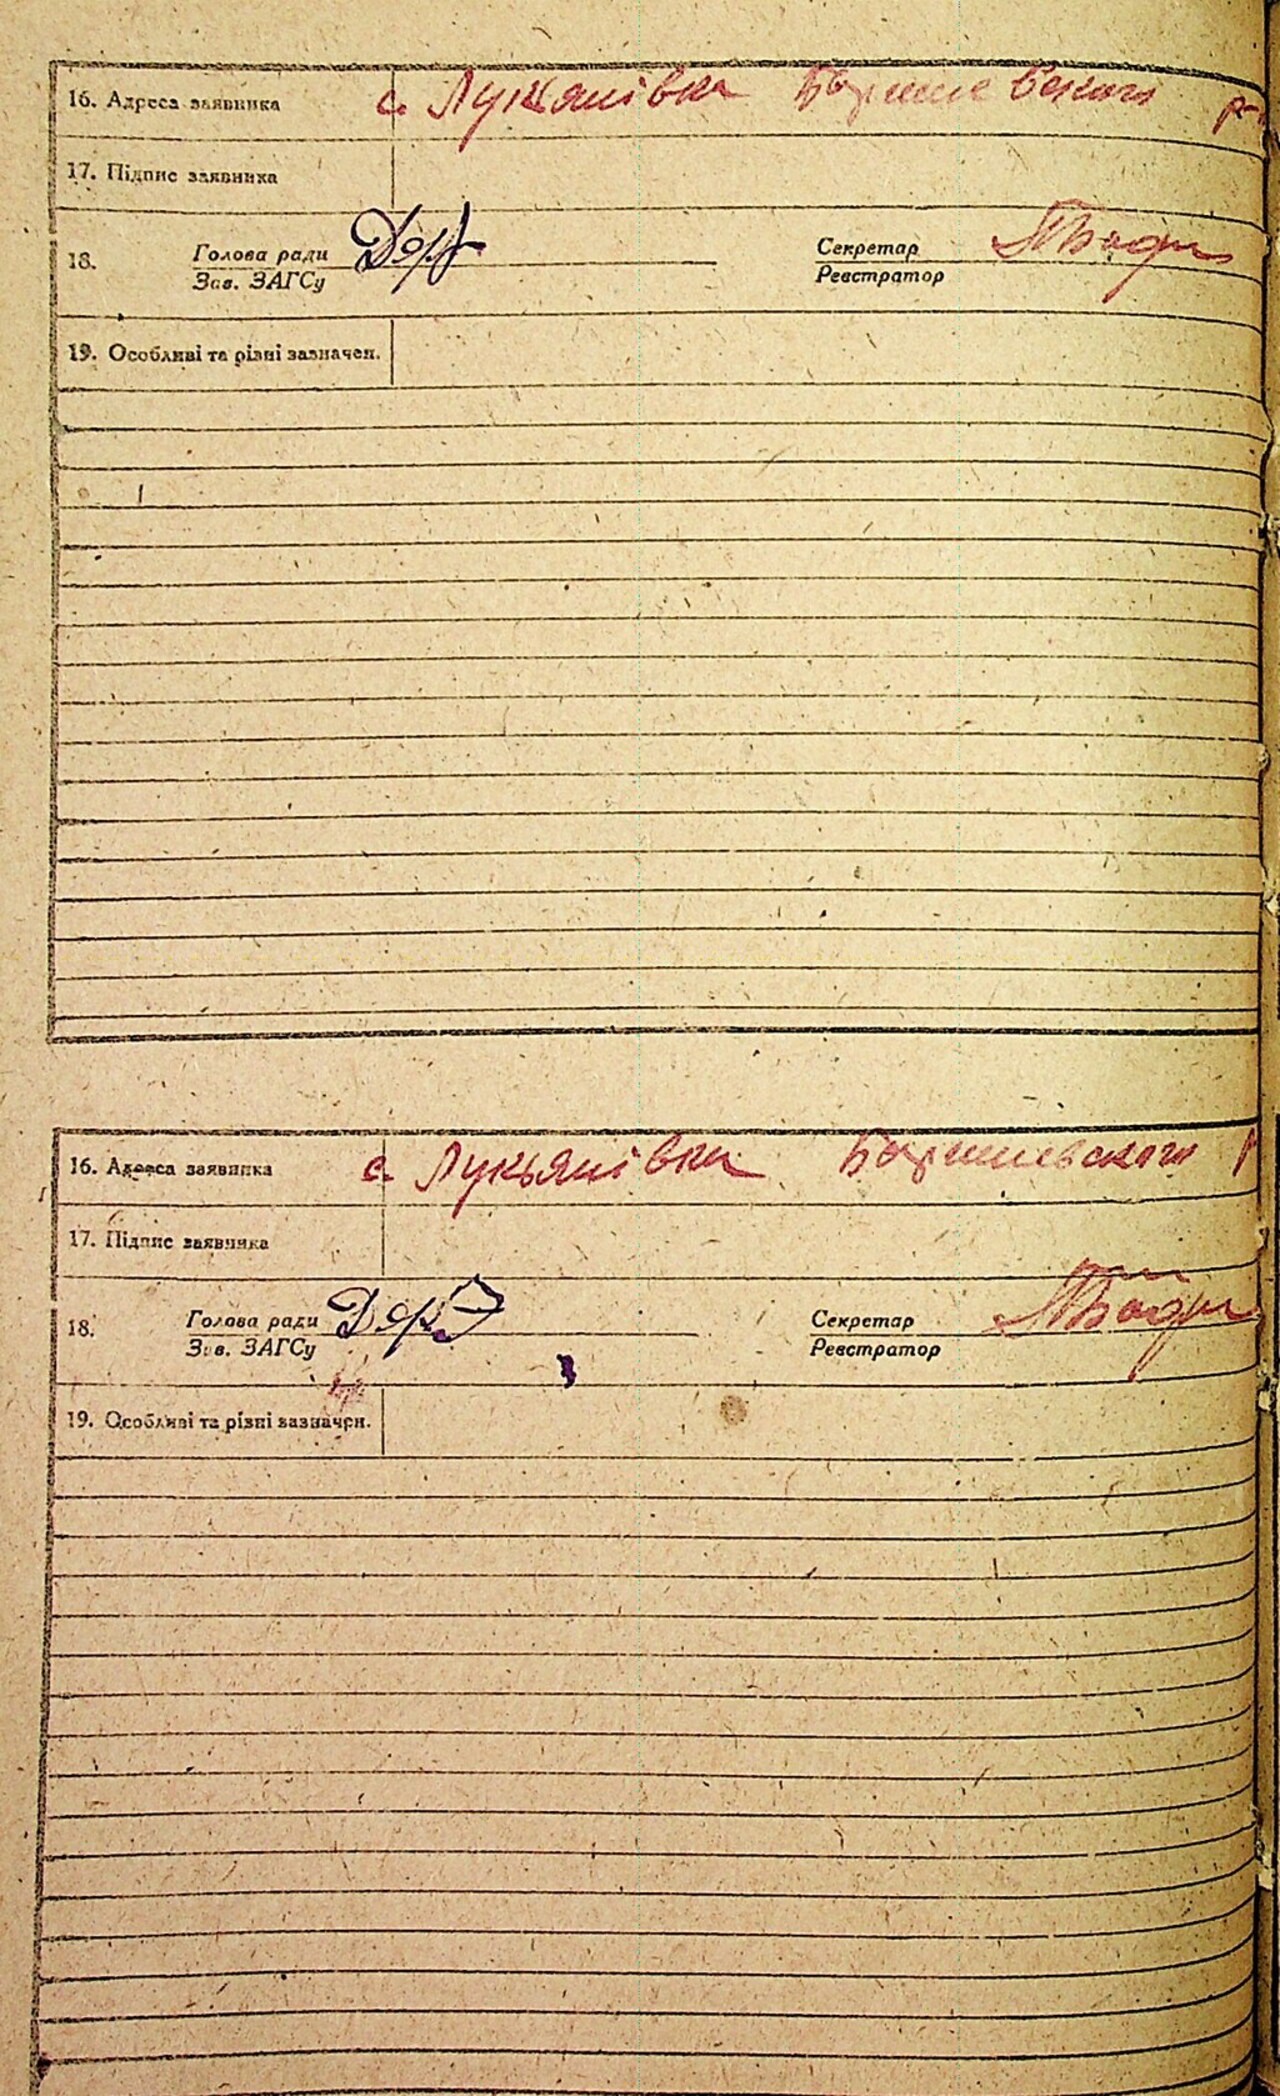 16. Адреса заявника с. Лукянівка Баришевського р-
17. Підпис заявника
18. Голова ради Секретар
Зав. ЗАГСу Реєстратор
19. Особливі та різні зазначен.
16. Адреса заявника с. Лукьянівка Баришевського р
17. Підпис заявника
18. Голова ради Секретар
Зав. ЗАГСу Реєстратор
19. Особливі та різні зазначен.